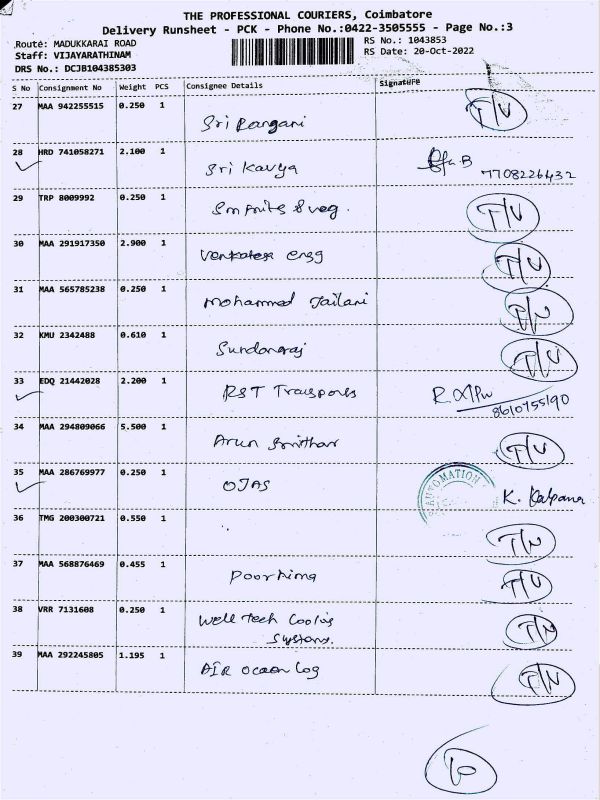 THE PROFESSIONAL COURIERS, Coimbatore
Delivery Runsheet - PCK - Phone No.:0422-3505555 - Page No.:3
Route: MADUKKARAI ROAD
RS No.: 1043853
Staff: VIJAYARATHINAM
RS Date: 20-Oct-2022
DRS No.: DCJB104385303
S No Consignment No Weight PCS Consignee Details Signature
27 MAA 942255515 0.250 1 Sri Rangani
28 HRD 741058271 2.100 1 Sri Kavya B 7708226432
29 TRP 8009992 0.250 1 & veg.
30 MAA 291917350 2.900 1 Venkatesa engg
31 MAA 565785238 0.250 1 Mohammed Jailani
32 KMU 2342488 0.610 1 Sundararaj
33 EDQ 21442028 2.200 1 RST Transports 8610755190
34 MAA 294809066 5.500 1 Arun
35 MAA 286769977 0.250 1 OJAS AUTOMATION K. Kalpana
36 TMG 200300721 0.550 1
37 MAA 568876469 0.455 1 Poornima
38 VRR 7131608 0.250 1 Well Tech Cooling
Systems.
39 MAA 292245805 1.195 1 AIR Ocean Log